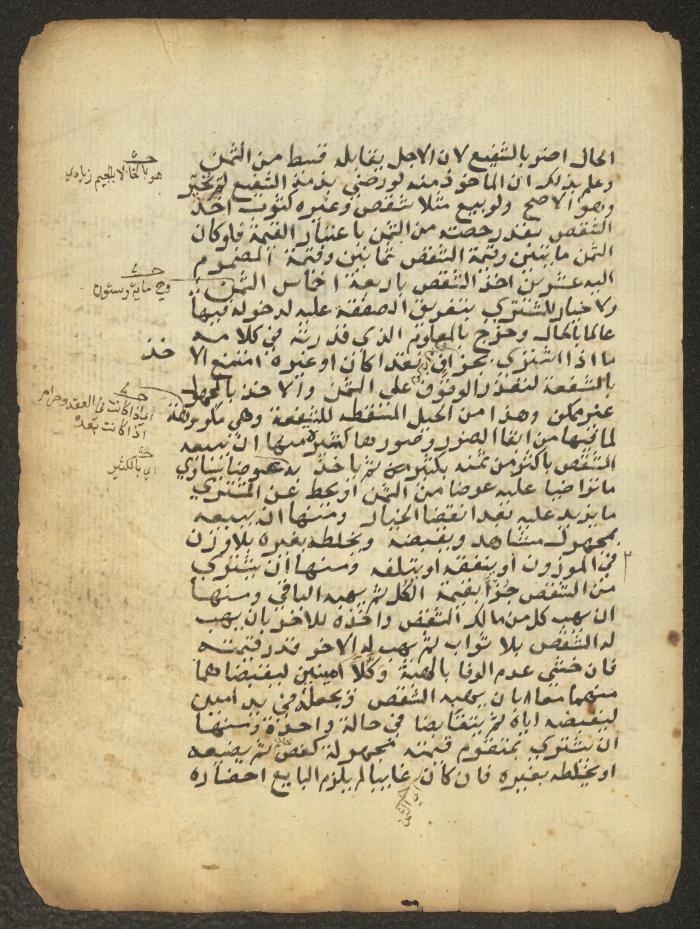 الحال اضر بالشفيع لان الاجل يقابله قسط من الثمن
وعلم بذلك ان الماخوذ منه لو رضي بذمة الشفيع لم يخير
وهو الاصح ولو بيع مثلا شقص وغيره كثوب اخذ
الشقص بقدر حصته من الثمن باعتبار القيمة فلو كان
الثمن مايتين وقيمة الشقص ثمانين وقيمة المضموم
اليه عشرين اخذ الشقص باربعة اخماس الثمن
ولا خيار للمشتري بتفريق الصفقة عليه لدخوله فيها
عالما بالحال وخرج بالمعلوم الذي قدرته في كلامه
ما اذا اشترى بجزاف نقدا كان او غيره امتنع الاخذ
بالشفعة لتعذر الوقوف علي الثمن والاخذ بالمجهول
غير ممكن وهذا من الحيل المسقطة للشفعة وهي مكروهة
لما فيها من ابقا الضرر وصورها كثيرة منها ان يبيعه
الشقص باكثر من ثمنه بكثير ثم ياخذ به عوضا يساوي
ما تراضيا عليه عوضا من الثمن او يحط عن المشتري
ما يزيد عليه بعد انقضا الخيار ومنها ان يبيعه
بمجهول مشاهد ويقبضه ويخلطه بغيره بلا وزن
في الموزون او ينفقه او يتلفه ومنها ان يشتري
من الشقص جزأ بقيمة الكل ثم يهبه الباقي ومنها
ان يهب كل من مالك الشقص واخذه للاخر بان يهب
له الشقص بلا ثواب ثم يهب له الاخر قدر قيمته
فان خشي عدم الوفا بالهبة وكلا امينين ليقبضاهما
منهما معا بان يهبه الشقص ويجعله في يد امين
ليقبضه اياه ثم يتقابضا في حالة واحدة ومنها
ان يشتري بمتقوم قيمته مجهولة كفص ثم يضيعه
او يخلطه بغيره فان كان غايبا لم يلزم البايع احضاره
هو بالخا لا بالجيم زيادي
وهي ماية وستون
اي اذا كانت في العقد وحرام
اذا كانت بعده
اي بالكثير
اي الثمن